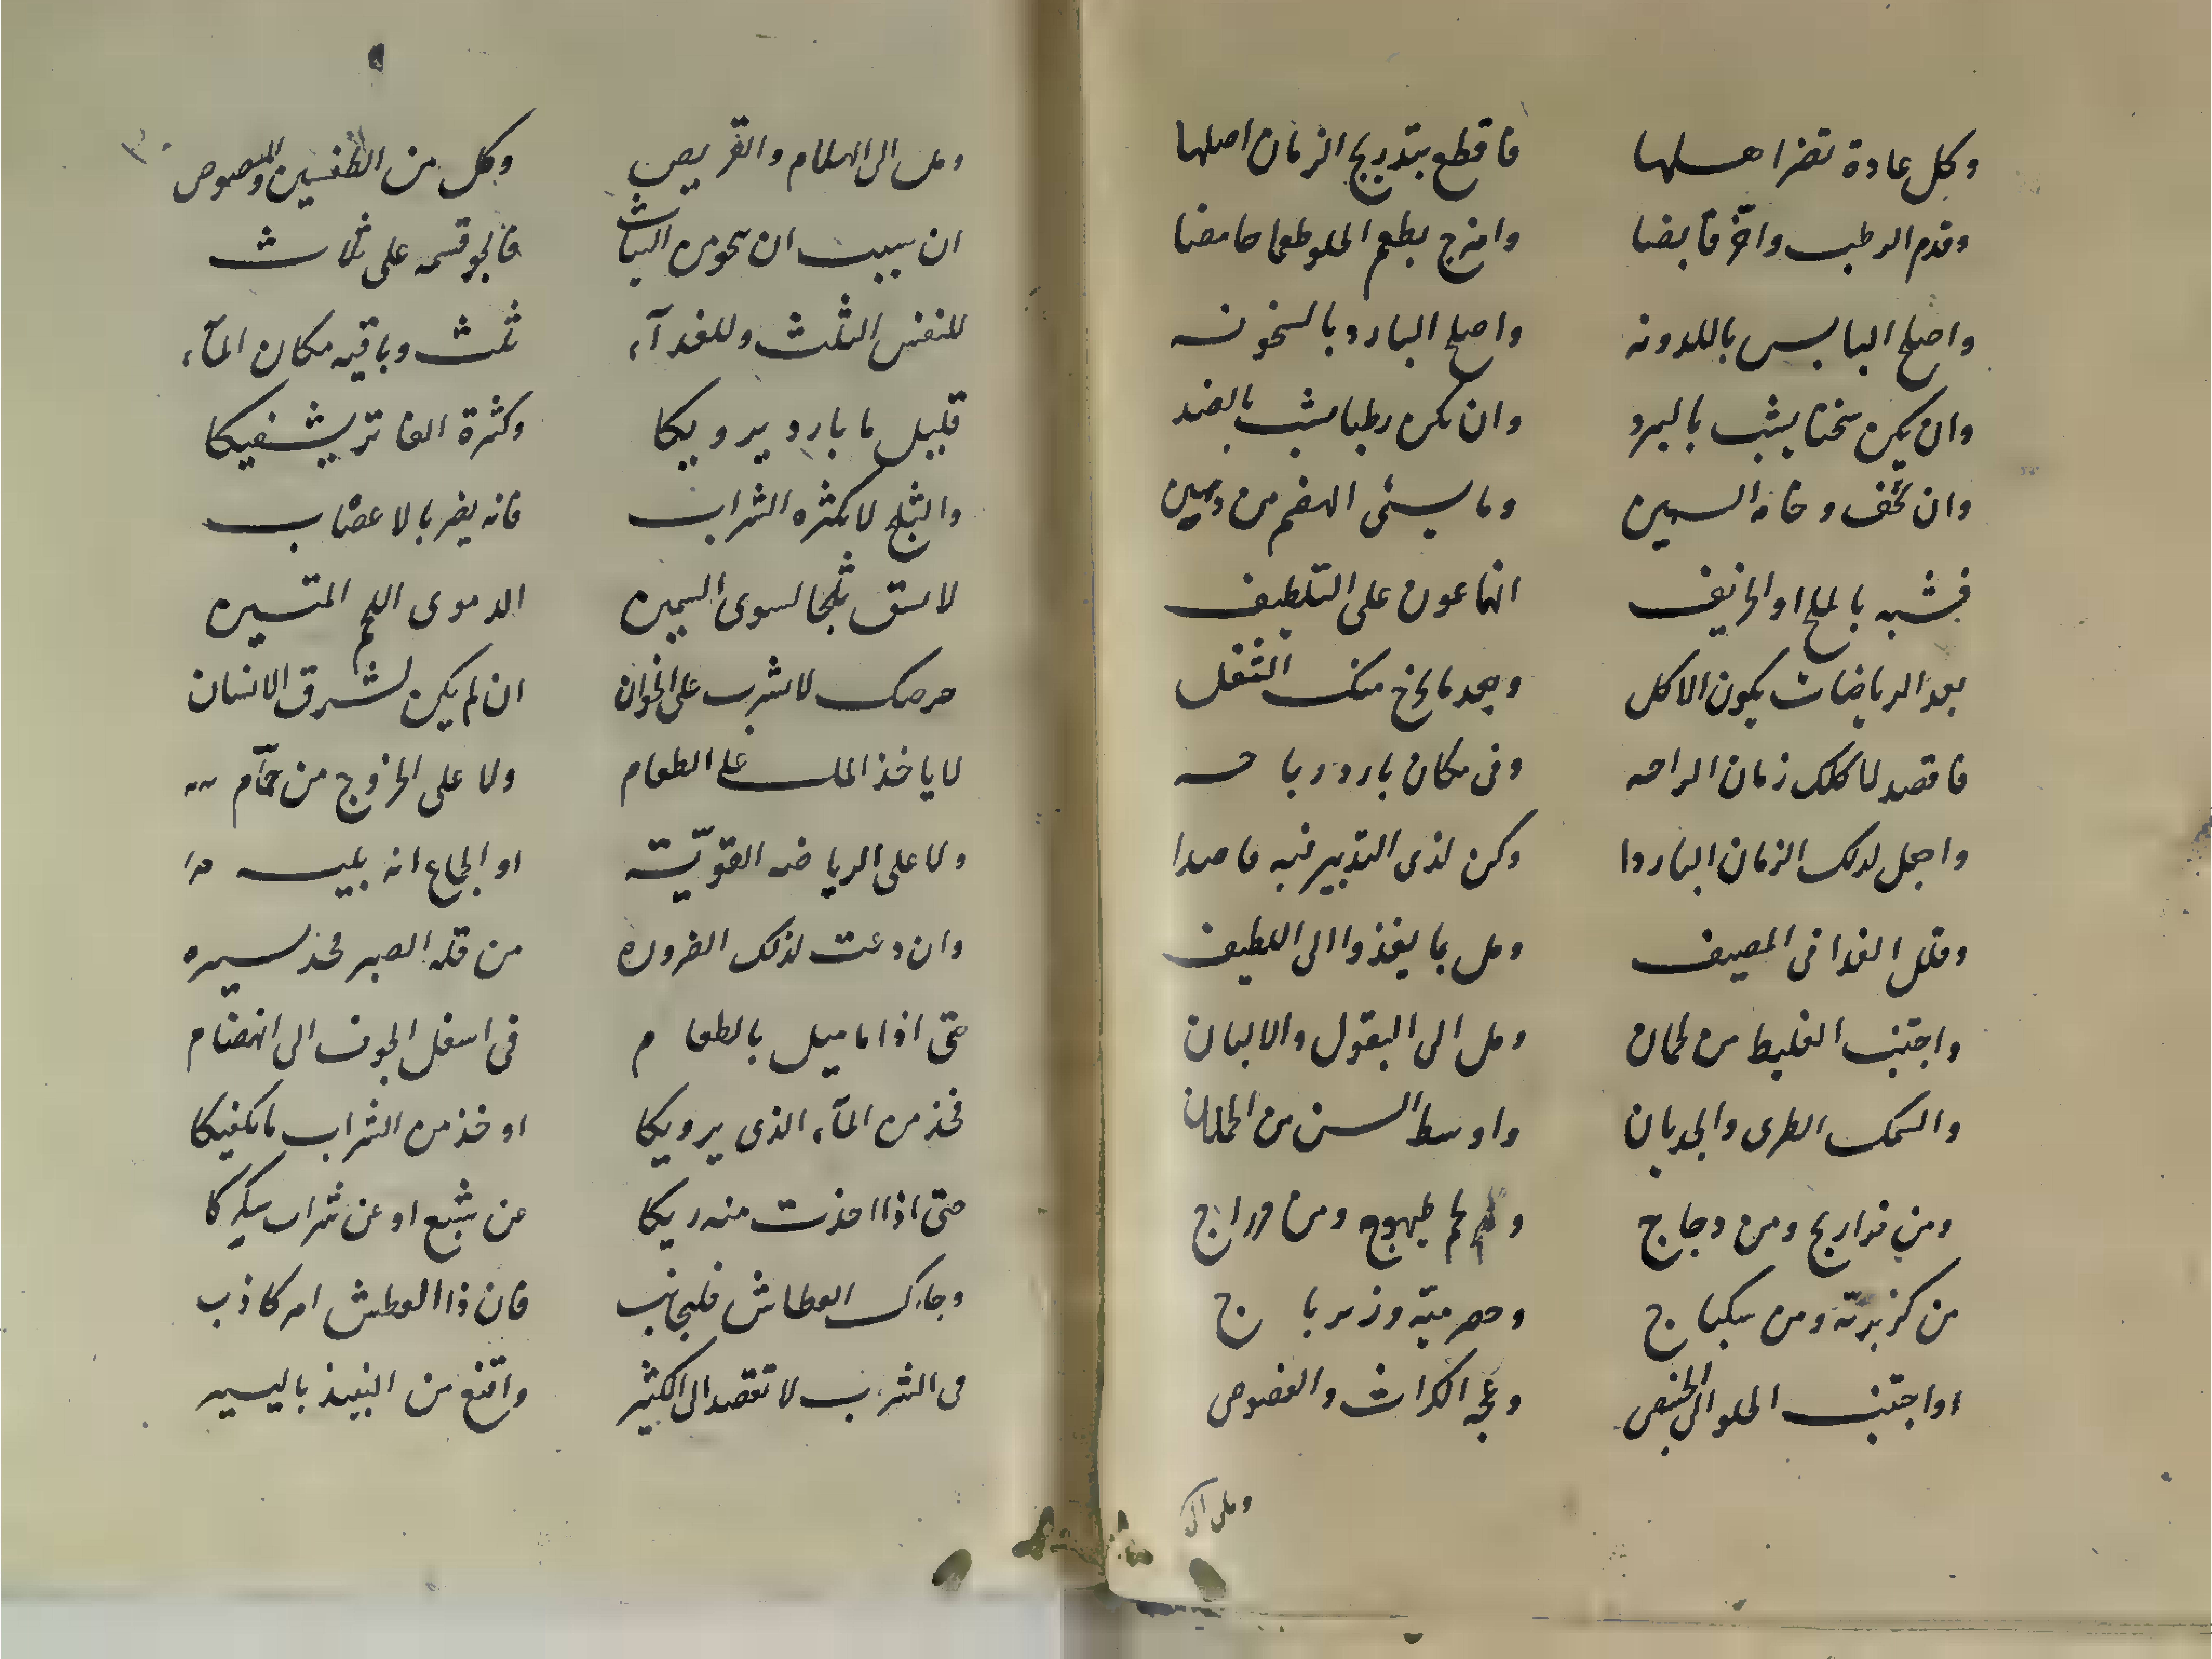 وكل عادة تضر اهلها فاقطع بتدريج الزمان اصلها
وقدم الرطب واخّر قابضا وامزج بطعم الحلو طعما حامضا
واصلح اليابس باللدونه واصلح البارد بالسخونه
وان يكن سخنا يشب بالبرد وان يكن رطبا يشب بالضد
وان تخف وخامة السمين وما يسئ الهضم من دهين
فشبه بالملح او الحريف انهما عون على التلطيف
بعد الرياضات يكون الاكل وبعد ما يخرج منك الثفل
فاقصد لاكلك زمان الراحه وفى مكان بارد رباحه
واجعل لذلك الزمان الباردا وكن لذى التدبير فيه قاصدا
وقلل الغذا فى المصيف ومل بما يغذوا الى اللطيف
واجتنب الغليظ من لحمان ومل الى البقول والالبان
والسمك الطرى والجديان واوسط السن من الحملان
ومن فراريج ومن دجاج ولحم طيهوج ومن دراج
من كزبريّة ومن سكباج وحصرمية وزيرباج
او اجتنب الحلو الى الخبيص وعجه الكراث والفصوص
ومل الى
ومل الى الهلام والقريص وكل من الطفسين والمصوص
ان سببت ان تحوى من الثياث فالجو قسمه على ثلاث
للنفس الثلث وللغدآء ثلث وباقيه مكان المآء
قليل ما بارد يرويكا وكثرة الفاتر يشفيكا
والثلج لا تكثره الشراب فانه يضر بالاعصاب
لا تسق ثلجا لسوى السمين الدموى اللحم المتين
حرصك لا تشرب على الخوان ان لم يكن لشرق الانسان
لا ياخذ الملـ على الطعام ولا على الخروج من حمّام
ولا على الرياضه القويّة او الجماع انه بليه
وان دعت لذلك الضروره من قله الصبر فخذ يسيره
حتى اذا ما ميل بالطعام فى اسفل الجوف الى انهضام
فخذ من المآء الذى يرويكا او خذ من الشراب ما يكفيكا
حتى اذا اخذت منه ريكا عن شبع او عن شراب يسكركا
وجاك العطاش فليجانب فان ذا العطش امر كاذب
فى الشرب لا تقصد الى الكثير واقنع من النبيذ باليسير